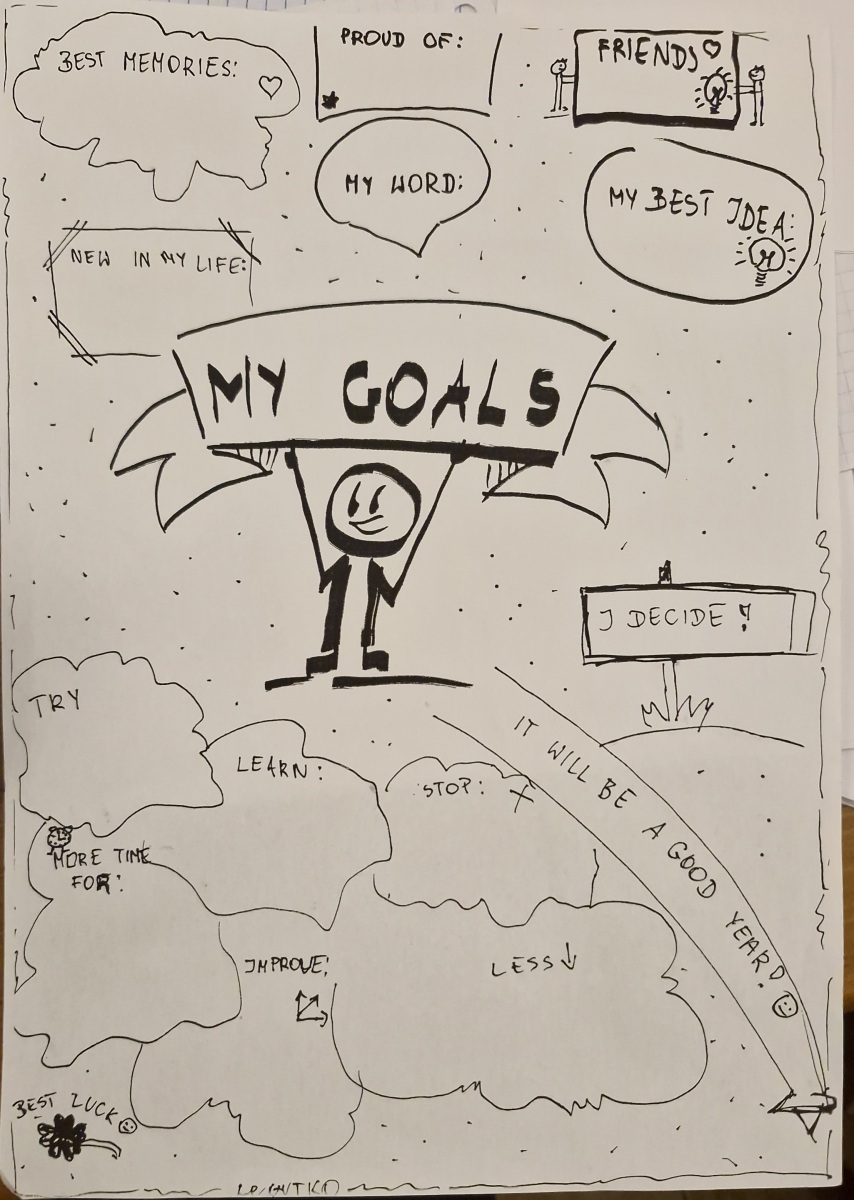 BEST MEMORIES:
PROUD OF:
FRIENDS
MY WORD:
MY BEST IDEA:
NEW IN MY LIFE:
MY GOALS
I DECIDE!
TRY
LEARN:
STOP:
IT WILL BE A GOOD YEAR!
MORE TIME
FOR:
IMPROVE:
LESS
BEST LUCK